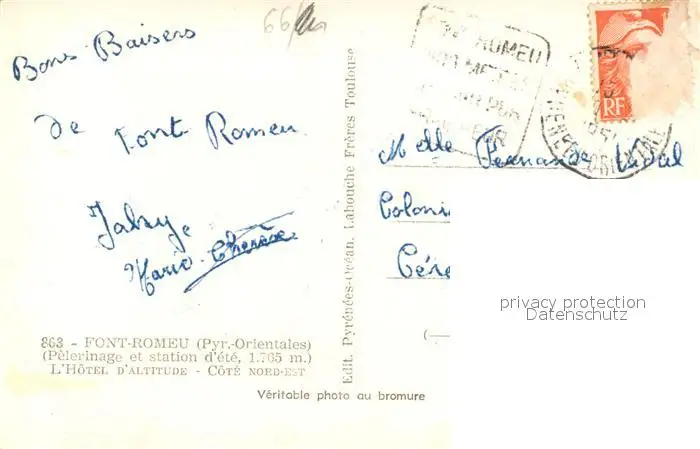 66/
Bons Baisers
de Font Romeu
Marie-Thérèse
863 - FONT-ROMEU (Pyr.-Orientales)
(Pèlerinage et station d'été, 1.765 m.)
L'HÔTEL D'ALTITUDE - CÔTÉ NORD-EST
Véritable photo au bromure
Edit. Pyrénées-Océan. Labouche Frères Toulouse
ROMEU
RF
Melle Fernande Vidal
Coloni
Cére
privacy protection
Datenschutz